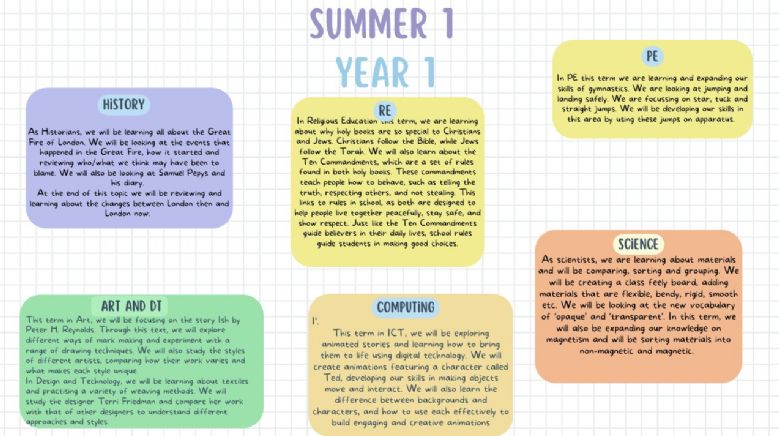 SUMMER 1
YEAR 1
HISTORY
As Historians, we will be learning all about the Great
Fire of London. We will be looking at the events that
happened in the Great Fire, how it started and
reviewing who/what we think may have been to
blame. We will also be looking at Samuel Pepys and
his diary.
At the end of this topic we will be reviewing and
learning about the changes between London then and
London now.
RE
In Religious Education this term, we are learning
about why holy books are so special to Christians
and Jews. Christians follow the Bible, while Jews
follow the Torah. We will also learn about the
Ten Commandments, which are a set of rules
found in both holy books. These commandments
teach people how to behave, such as telling the
truth, respecting others, and not stealing. This
links to rules in school, as both are designed to
help people live together peacefully, stay safe, and
show respect. Just like the Ten Commandments
guide believers in their daily lives, school rules
guide students in making good choices.
PE
In PE this term we are learning and expanding our
skills of gymnastics. We are looking at jumping and
landing safely. We are focussing on star, tuck and
straight jumps. We will be developing our skills in
this area by using these jumps on apparatus.
SCIENCE
As scientists, we are learning about materials
and will be comparing, sorting and grouping. We
will be creating a class feely board, adding
materials that are flexible, bendy, rigid, smooth
etc. We will be looking at the new vocabulary
of 'opaque' and 'transparent'. In this term, we
will also be expanding our knowledge on
magnetism and will be sorting materials into
non-magnetic and magnetic.
ART AND DT
This term in Art, we will be focusing on the story Ish by
Peter H. Reynolds. Through this text, we will explore
different ways of mark making and experiment with a
range of drawing techniques. We will also study the styles
of different artists, comparing how their work varies and
what makes each style unique.
In Design and Technology, we will be learning about textiles
and practising a variety of weaving methods. We will
study the designer Terri Friedman and compare her work
with that of other designers to understand different
approaches and styles.
COMPUTING
1'.
This term in ICT, we will be exploring
animated stories and learning how to bring
them to life using digital technology. We will
create animations featuring a character called
Ted, developing our skills in making objects
move and interact. We will also learn the
difference between backgrounds and
characters, and how to use each effectively to
build engaging and creative animations